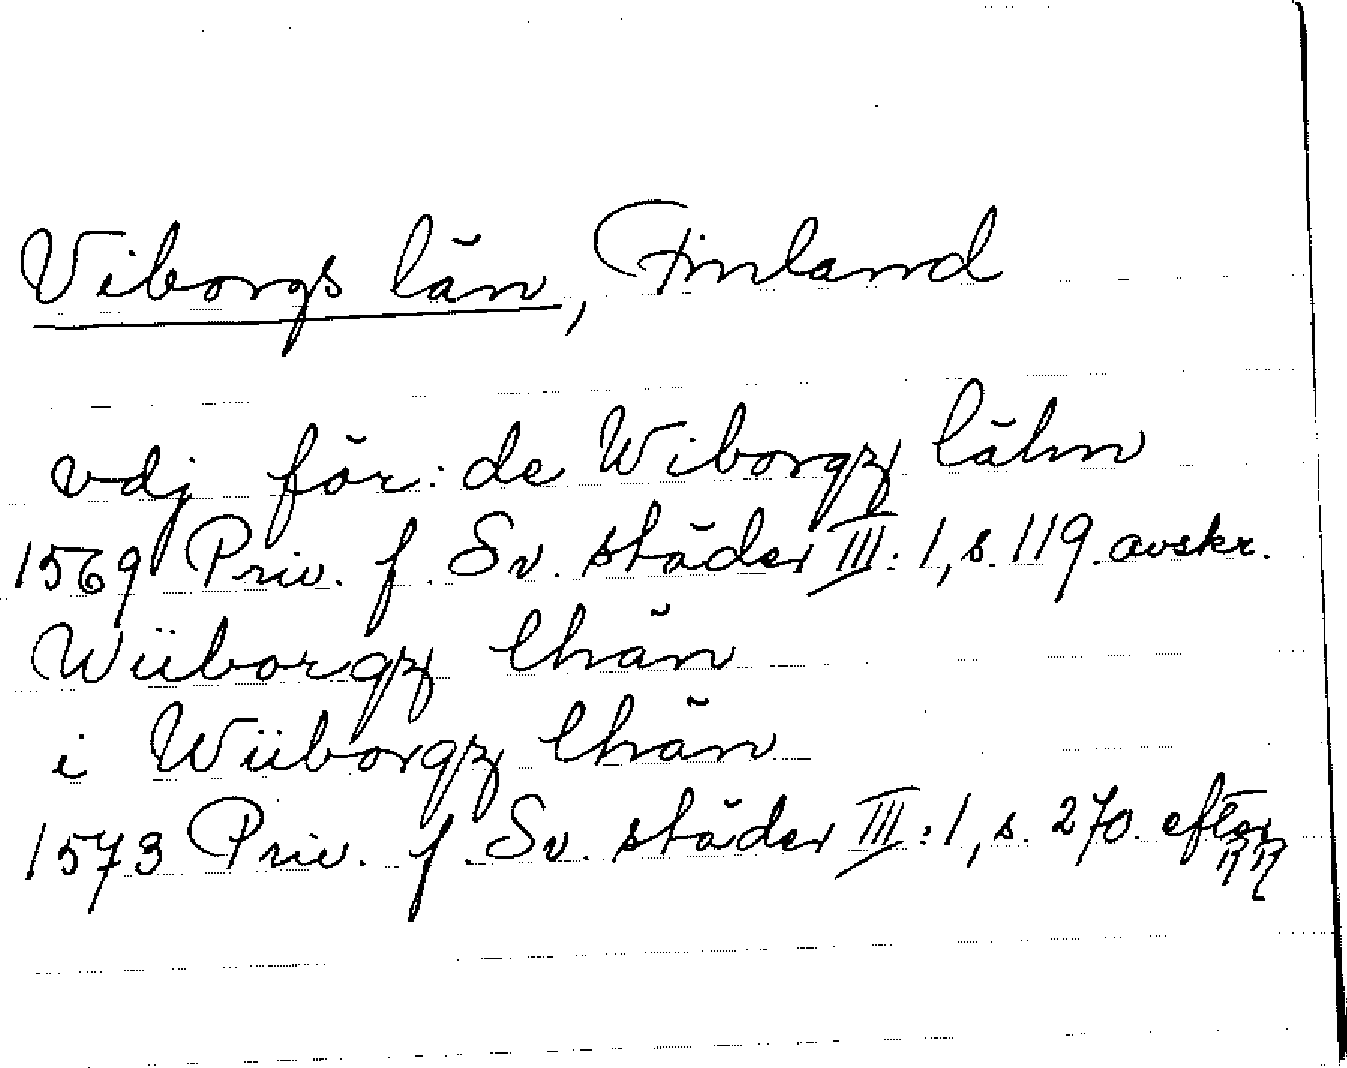 Viborgs län, Finland
vdj för: de Wiborgz lähn
1569 Priv. f. Sv. städer III: 1, s. 119 avskr.
Wiiborgz lhän
i Wiiborgz lhän
1573 Priv. f. Sv. städer III: 1, s. 270. efter
RR